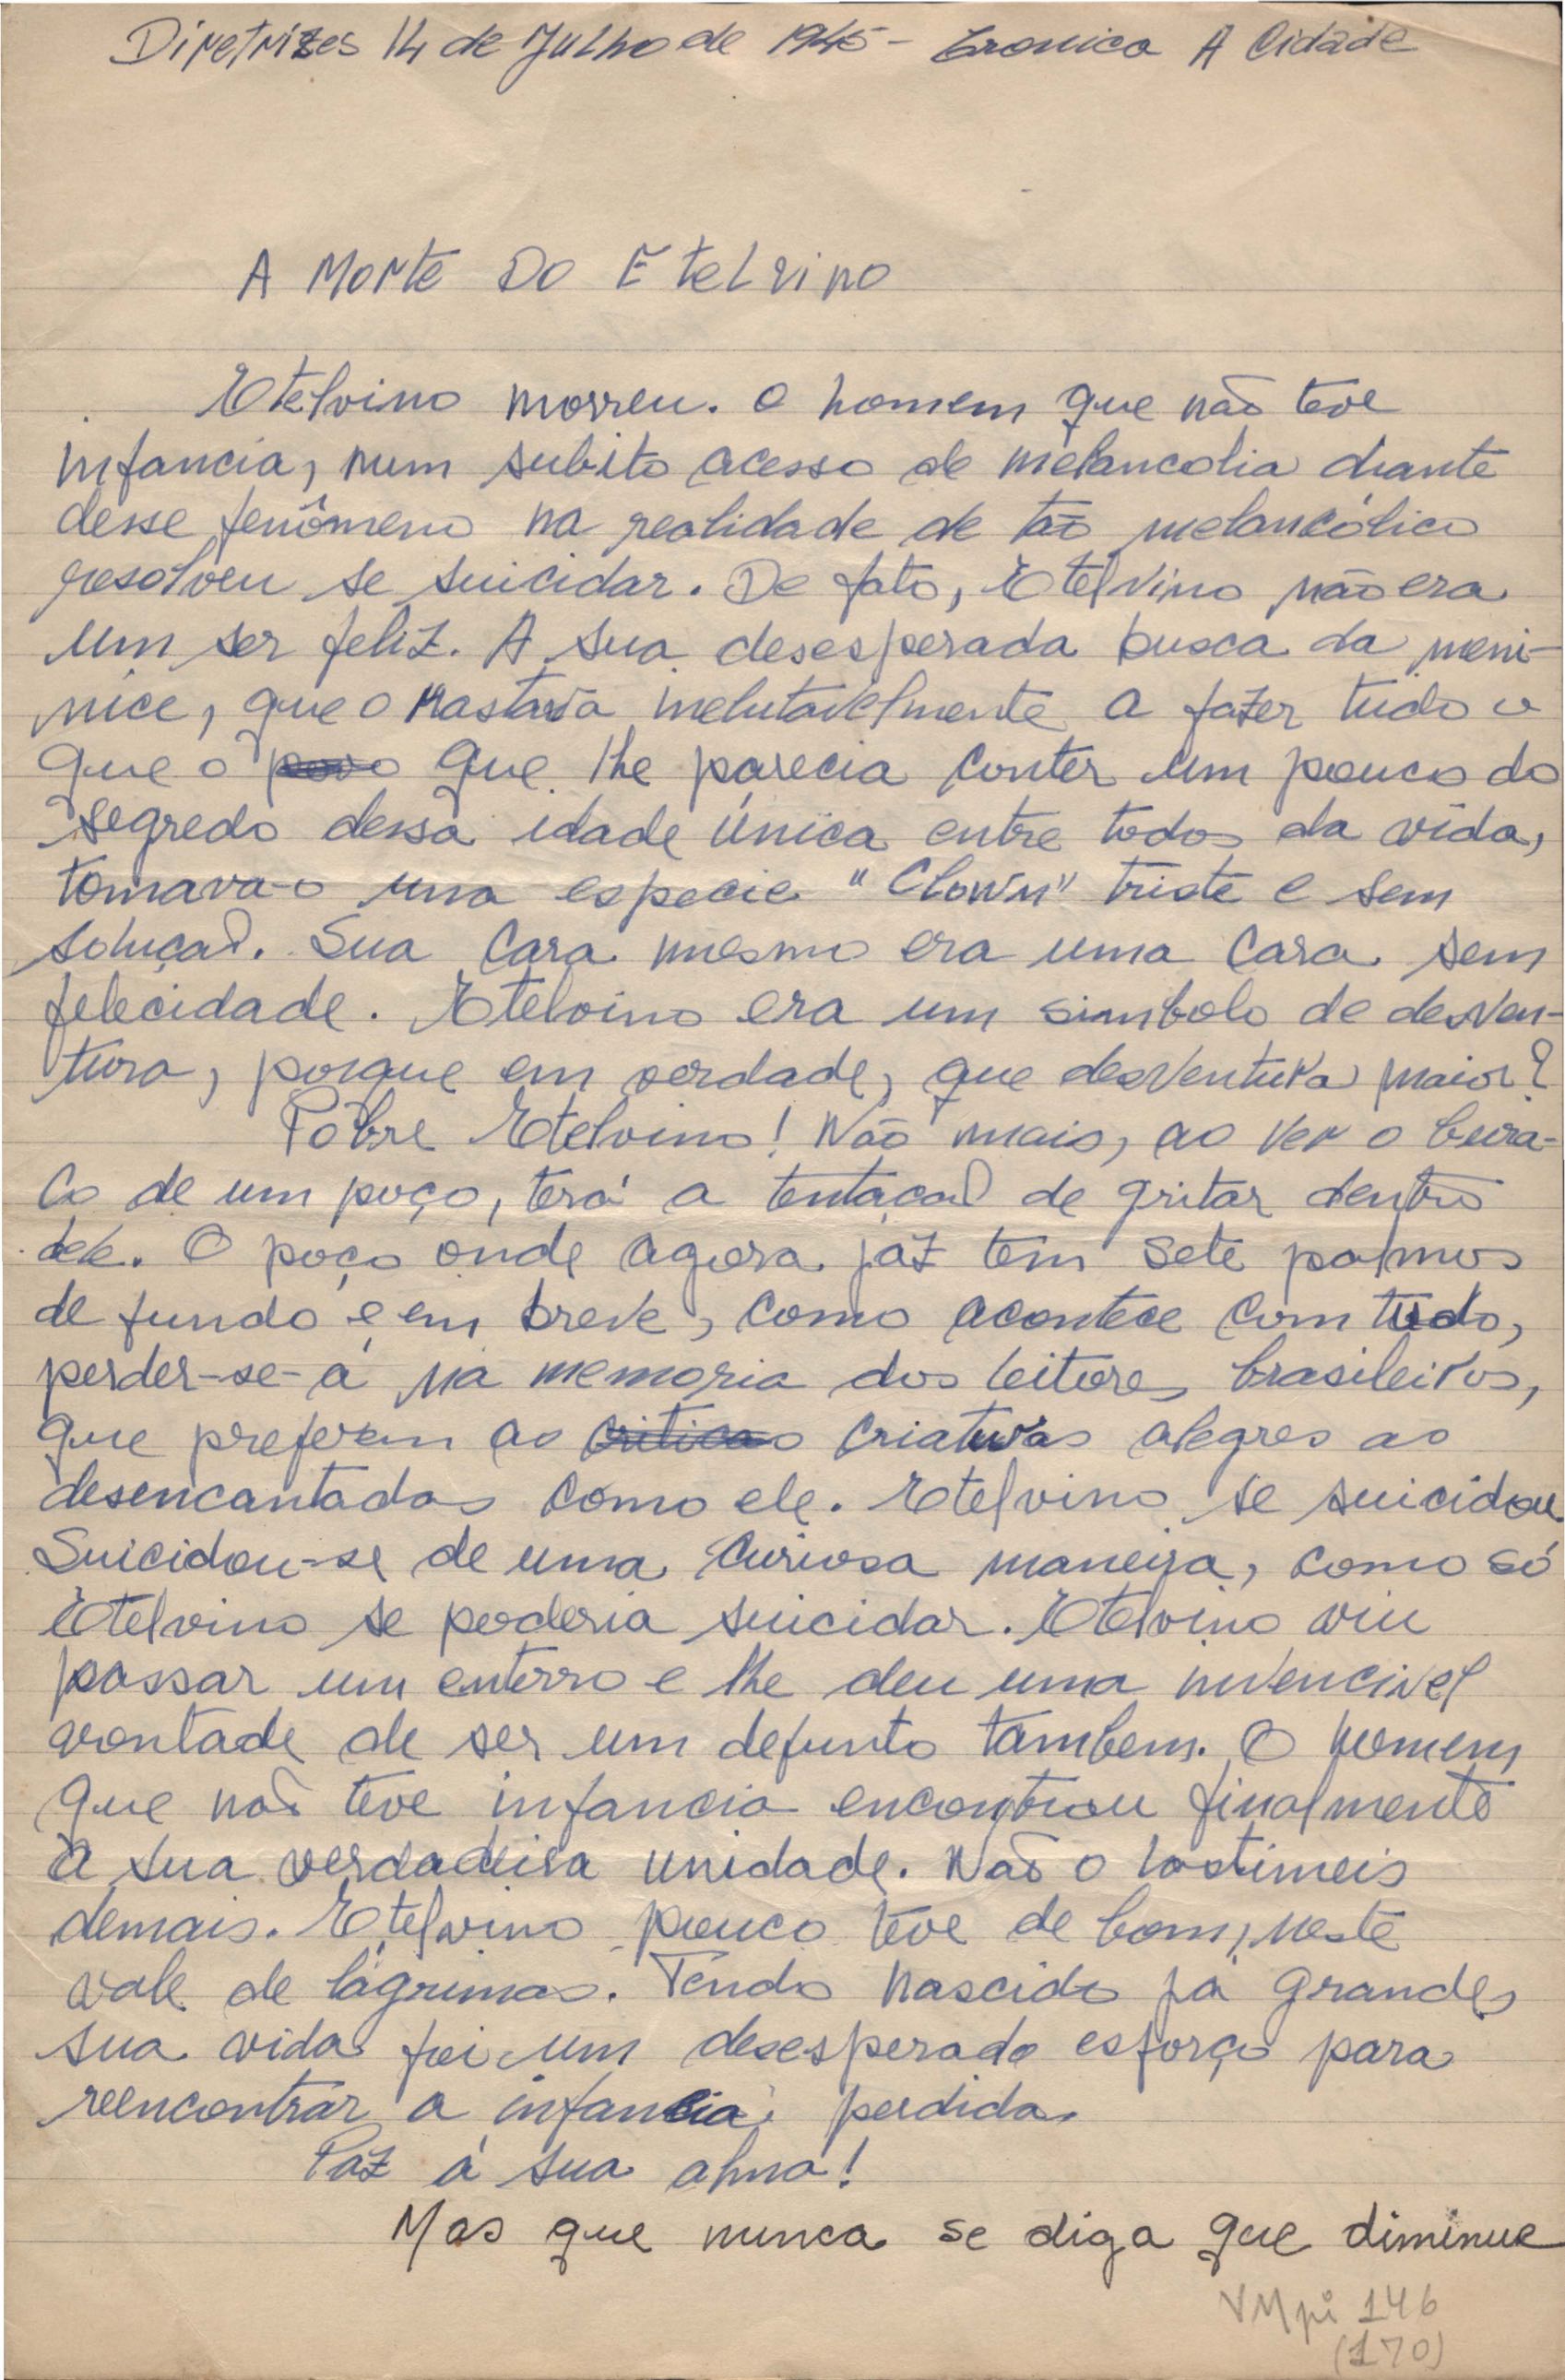 Diretrizes 14 de Julho de 1945 - Cronica A Cidade
A Morte Do Etelvino
Etelvino morreu. O homem que não teve
infancia, num subito acesso de melancolia diante
desse fenômeno na realidade de tão melancólico
resolveu se suicidar. De fato, Etelvino não era
um ser feliz. A sua desesperada busca da meni-
nice, que o arrastava inelutavelmente a fazer tudo o
que o povo que lhe parecia conter um pouco do
segredo dessa idade única entre todas da vida,
tornava-o uma especie "Clown" triste e sem
solução. Sua cara mesmo era uma cara sem
felecidade. Etelvino era um simbolo de desven-
tura, porque em verdade, que desventura maior?
Pobre Etelvino! Não mais, ao ver o bura-
co de um poço, terá a tentação de gritar dentro
dele. O poço onde agora jaz tem sete palmos
de fundo e em breve, como acontece com tudo,
perder-se-á na memoria dos leitores brasileiros,
que preferem as criticas criaturas alegres as
desencantadas como ele. Etelvino se suicidou.
Suicidou-se de uma curiosa maneira, como só
Etelvino se poderia suicidar. Etelvino viu
passar um enterro e lhe deu uma invencivel
vontade de ser um defunto tambem. O homem
que não teve infancia encontrou finalmente
a sua verdadeira unidade. Não o lastimeis
demais. Etelvino pouco teve de bom, neste
vale de lágrimas. Tendo nascido já grande,
sua vida foi um desesperado esforço para
reencontrar a infancia perdida.
Paz á sua alma!
Mas que nunca se diga que diminue
VMpi 146
(170)